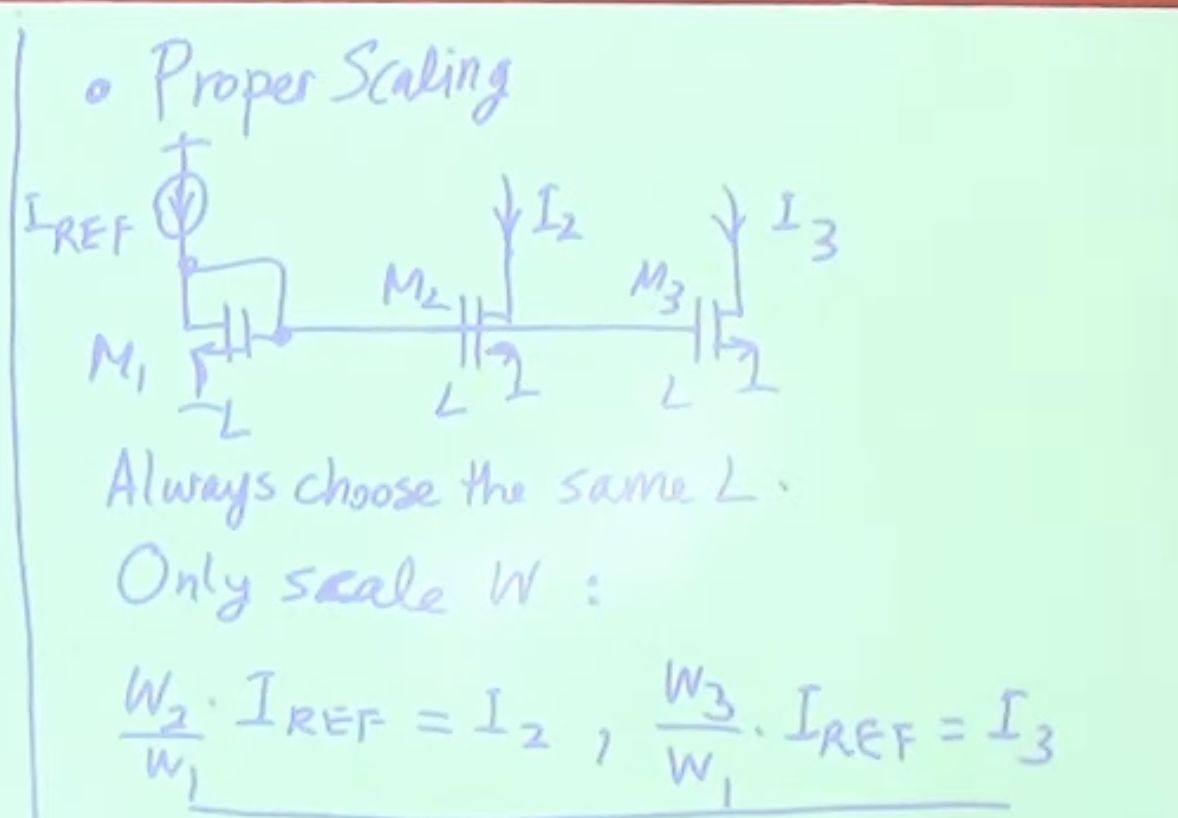 • Proper Scaling
I_REF
I₂
I₃
M₂
M₃
M₁
L
L
L
Always choose the same L.
Only scale W :
W₂/W₁ · I_REF = I₂ , W₃/W₁ · I_REF = I₃